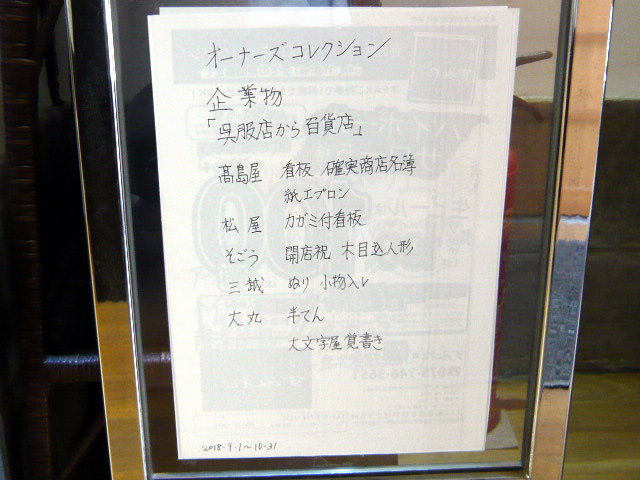 オーナーズコレクション
企業物
「呉服店から百貨店」
髙島屋 看板 確実商店名簿
紙エプロン
松屋 カガミ付看板
そごう 開店祝 木目込人形
三越 ぬり 小物入レ
大丸 半てん
大文字屋覚書き
2018.9.1~10.31